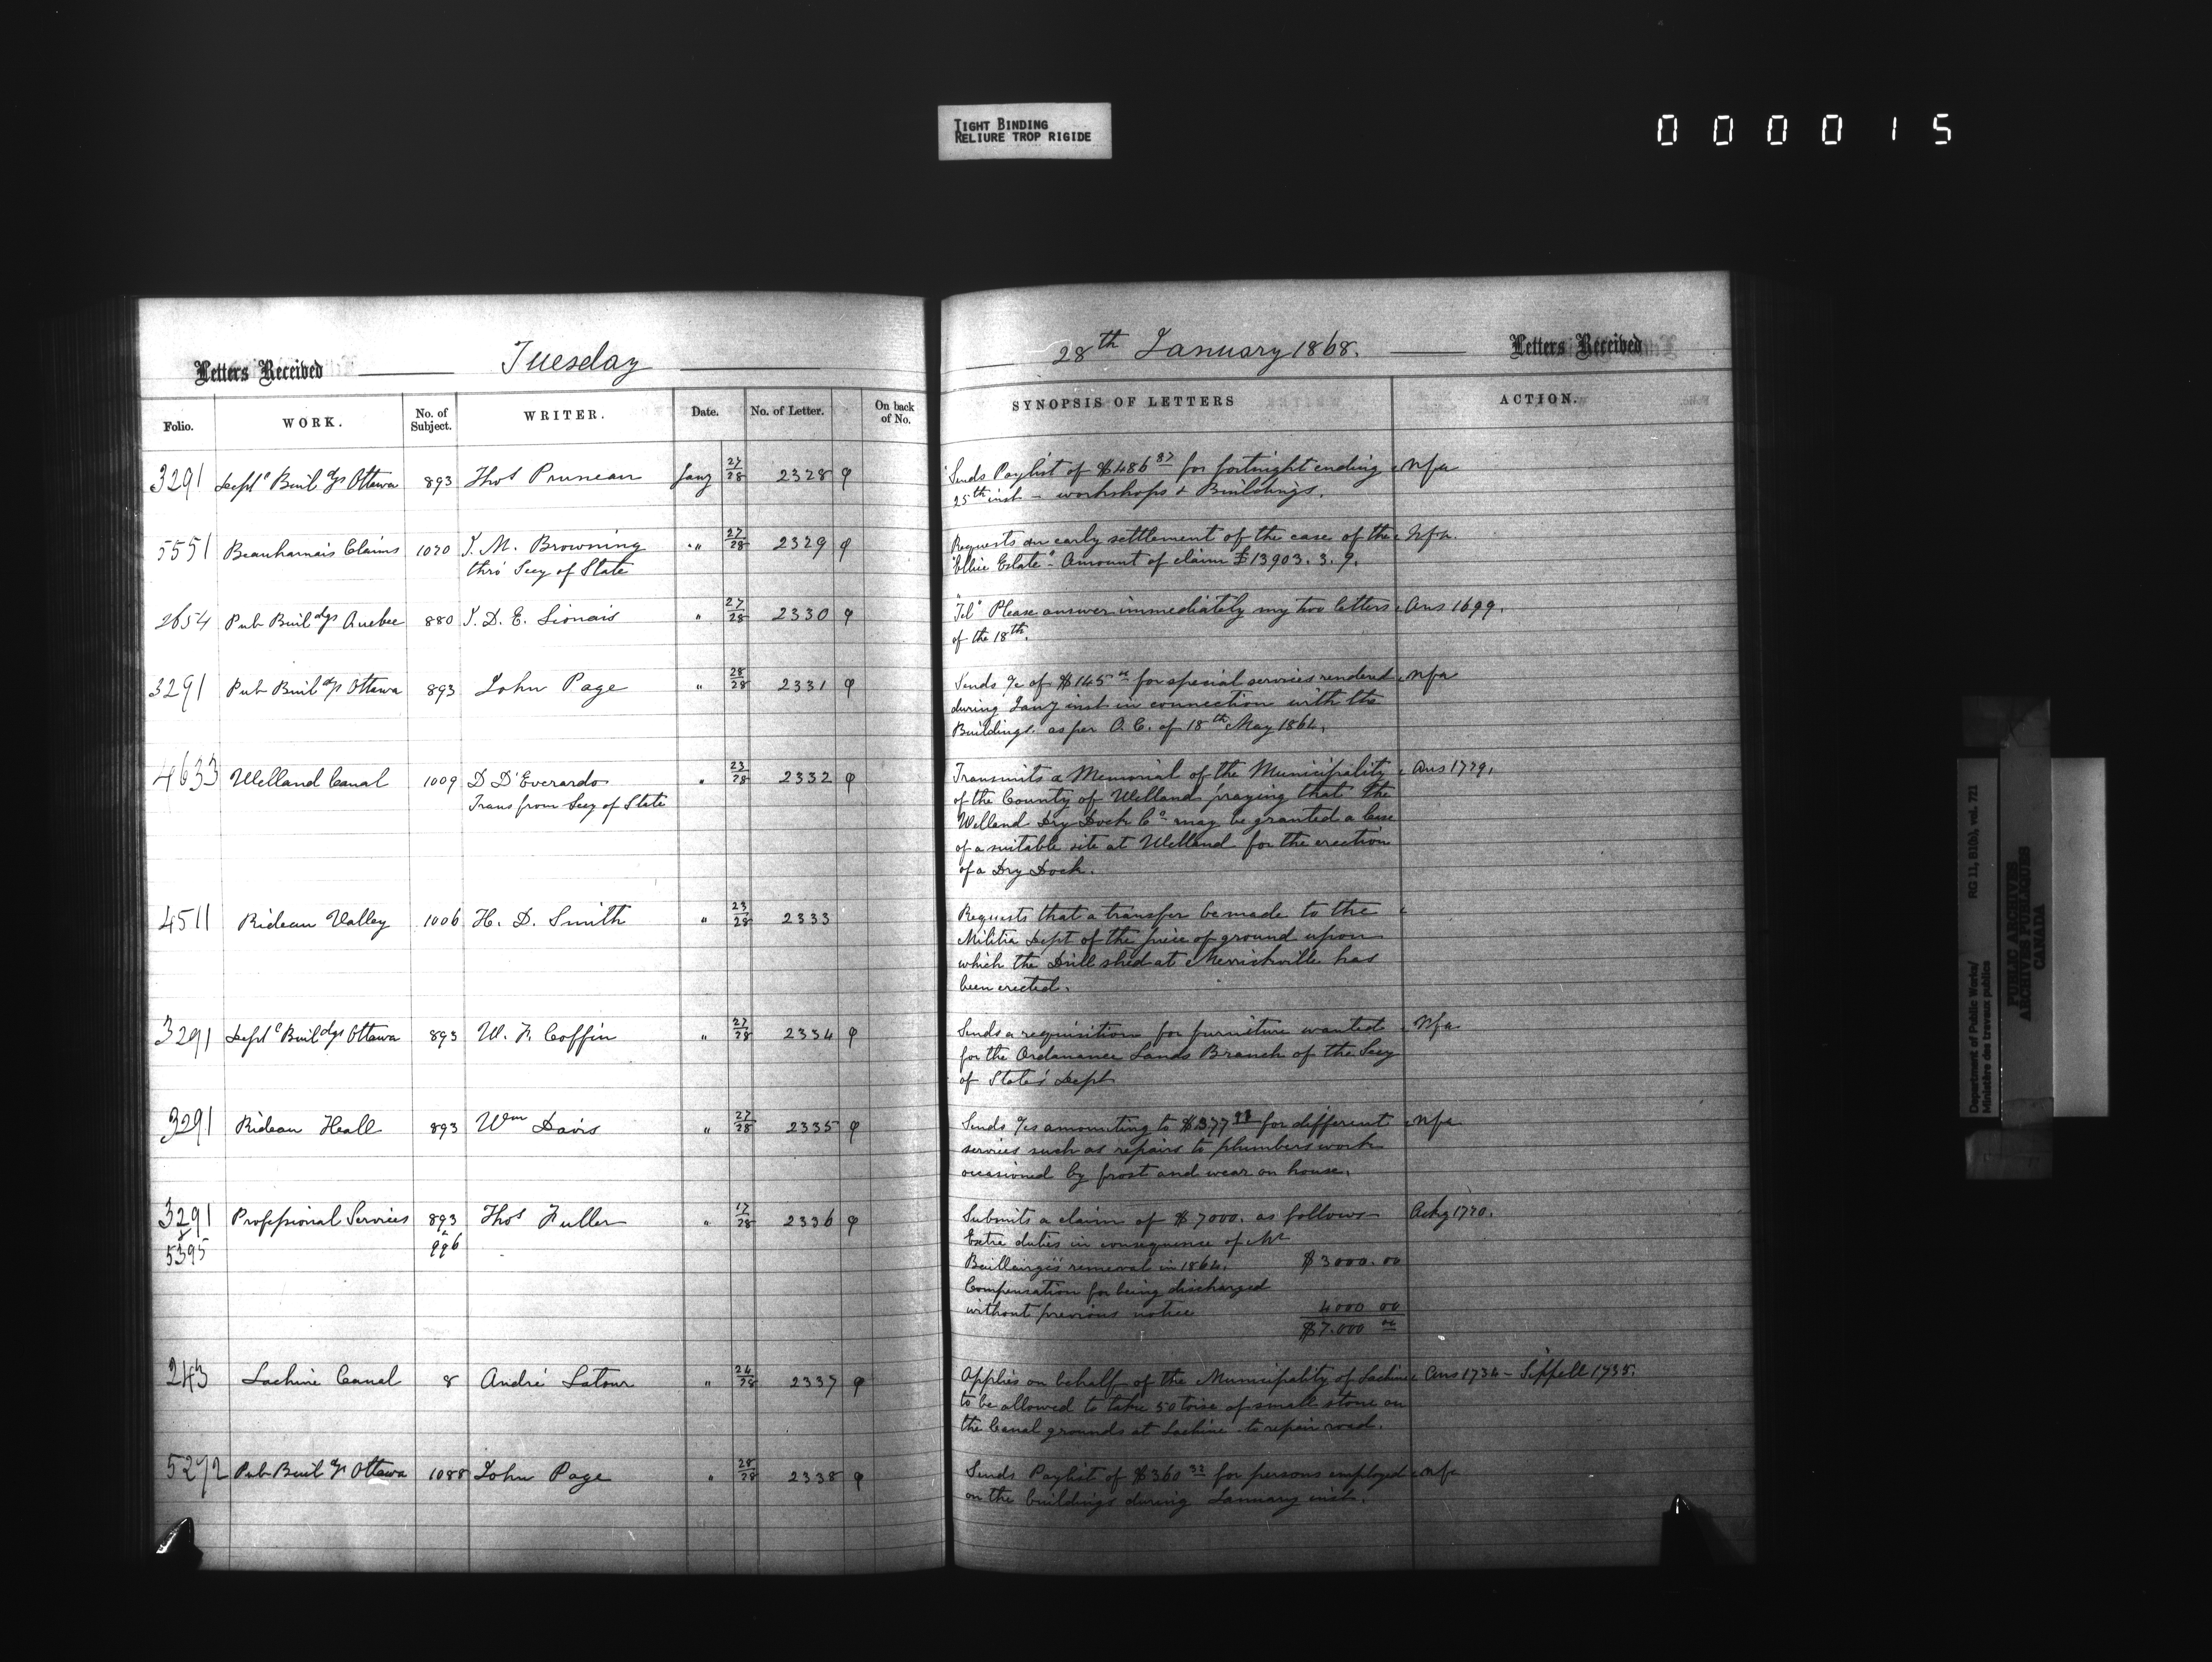 TIGHT BINDING
RELIURE TROP RIGIDE
000015
Letters Received
Tuesday
28th January 1868.
Letters Received
Folio.
WORK.
No. of Subject.
WRITER.
Date.
No. of Letter.
On back of No.
SYNOPSIS OF LETTERS
ACTION.
3291 Deptl Buildgs Ottawa 893 Thos Pruneau Jany 27/28 2328 φ Sends Paylist of $486 87 for fortnight ending Nfa
25th inst - workshops & Buildings.
5551 Beauharnais Claims 1070 T. M. Browning " 27/28 2329 φ Requests an early settlement of the case of the Nfa
thro' Secy of State "Ellice Estate". Amount of claim £13903. 3. 9.
2654 Pub Buildgs Quebec 880 J. D. E. Lionais " 27/28 2330 φ "Tel" Please answer immediately my two letters Ans 1699.
of the 18th.
3291 Pub Buildgs Ottawa 893 John Page " 28/28 2331 φ Sends a/c of $145 00 for special services rendered Nfa
during Jany inst in connection with the
Buildings as per O. C. of 18th May 1864.
4633 Welland Canal 1009 D D'Everardo " 23/28 2332 φ Transmits a Memorial of the Municipality Ans 1779.
Trans from Secy of State of the County of Welland praying that the
Welland Dry Dock Co may be granted a lease
of a suitable site at Welland for the erection
of a Dry Dock.
4511 Rideau Valley 1006 H. D. Smith " 23/28 2333 Requests that a transfer be made to the
Militia Dept of the piece of ground upon
which the Drill shed at Merrickville has
been erected.
3291 Deptl Buildgs Ottawa 893 W. F. Coffin " 27/28 2334 φ Sends a requisition for furniture wanted Nfa
for the Ordnance Lands Branch of the Secy
of State's Dept
3291 Rideau Hall 893 Wm Davis " 27/28 2335 φ Sends a/cs amounting to $377 for different Nfa
services such as repairs to plumbers work
occasioned by frost and wear on house.
3291 Professional Services 893 Thos Fuller " 17/28 2336 φ Submits a claim of $7000. as follows Ackg 1770.
& 5395 & 996 Extra duties in consequence of Mr
Baillairgé's removal in 1864. $3000.00
Compensation for being discharged
without previous notice 4000 00
$7.000 00
243 Lachine Canal 8 André Latour " 24/28 2337 φ Applies on behalf of the Municipality of Lachine Ans 1734 - Sippell 1735.
to be allowed to take 50 toise of small stone on
the Canal grounds at Lachine to repair road.
5272 Pub Buildgs Ottawa 1088 John Page " 28/28 2338 φ Sends Paylist of $360 32 for persons employed Nfa
on the buildings during January inst.
Department of Public Works/ RG 11, B1(b), vol. 721
Ministère des travaux publics
PUBLIC ARCHIVES
ARCHIVES PUBLIQUES
CANADA